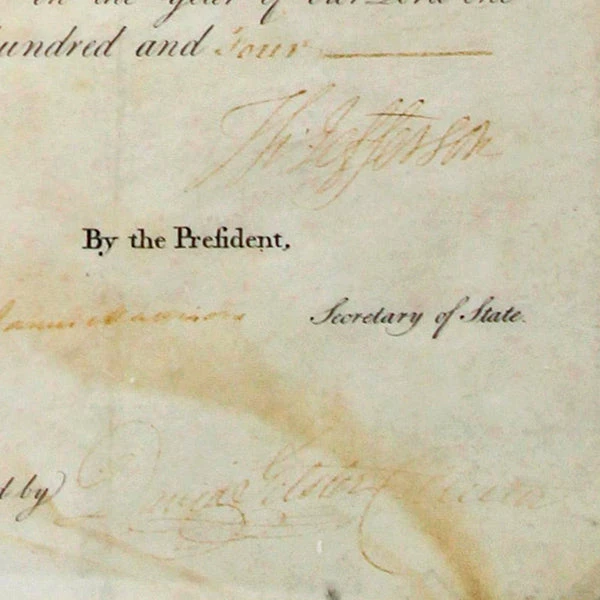 in the year of our Lord one
hundred and Four
Th: Jefferson
By the Preſident,
James Madison Secretary of State.
d by